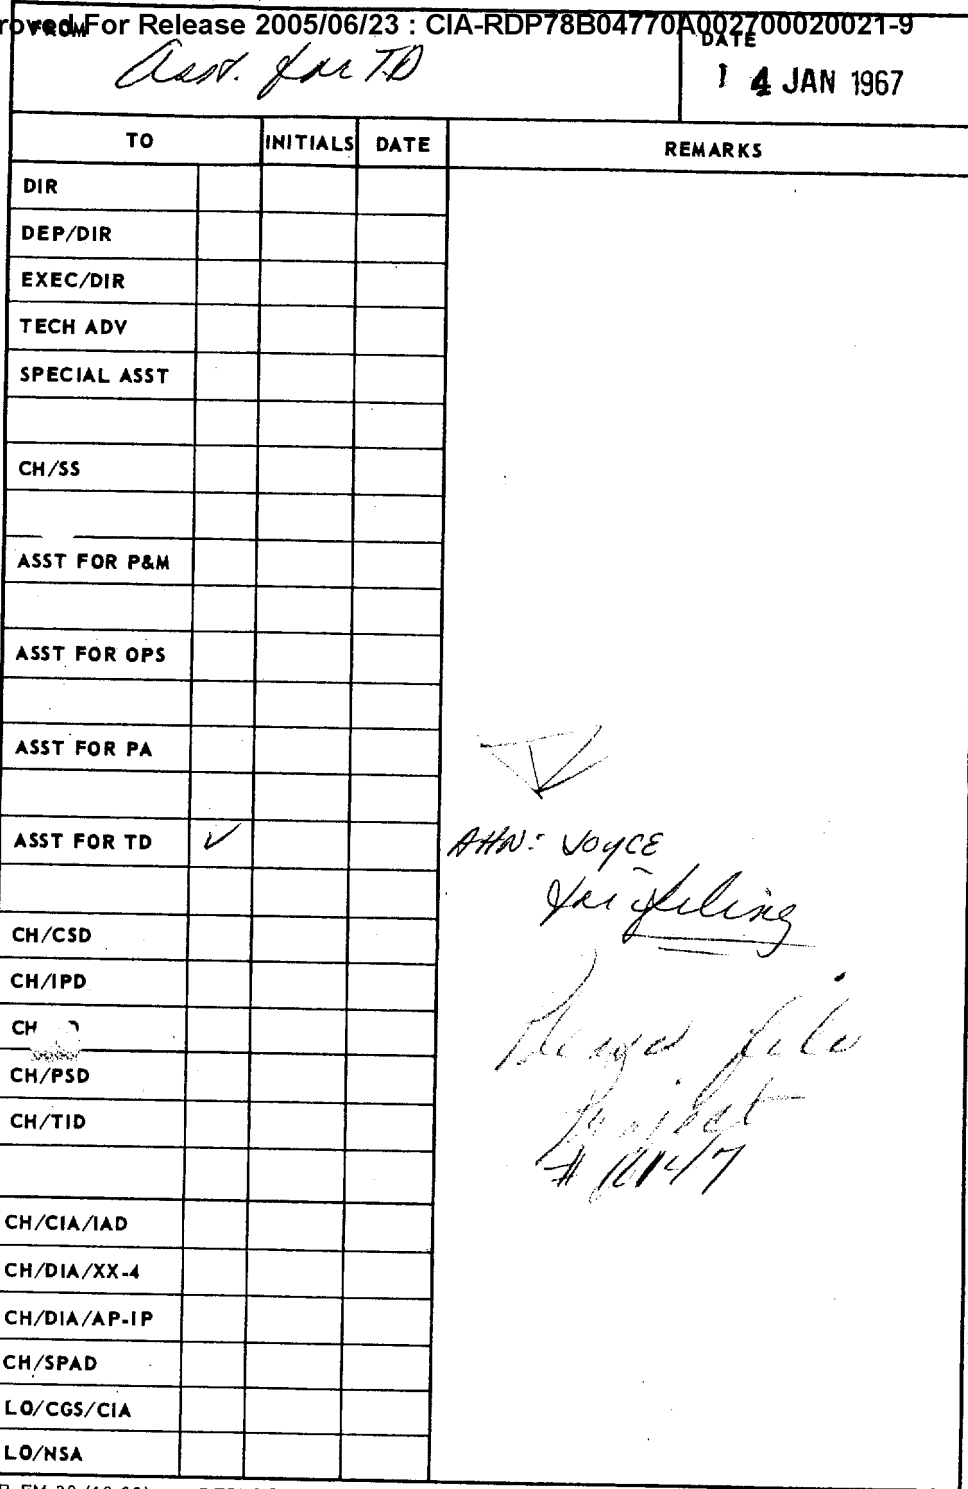 roved For Release 2005/06/23 : CIA-RDP78B04770A002700020021-9
FROM
Asst. for TD
DATE
1 4 JAN 1967
TO INITIALS DATE REMARKS
DIR
DEP/DIR
EXEC/DIR
TECH ADV
SPECIAL ASST
CH/SS
ASST FOR P&M
ASST FOR OPS
ASST FOR PA
ASST FOR TD ✓
Attn: JOYCE
for filing
CH/CSD
CH/IPD
CH
file
CH/PSD
Project
CH/TID
#
CH/CIA/IAD
CH/DIA/XX-4
CH/DIA/AP-IP
CH/SPAD
LO/CGS/CIA
LO/NSA